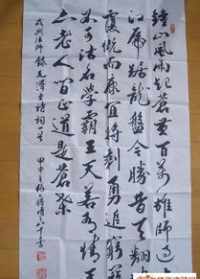 鐘山風雨起蒼黄百萬雄師過
大江虎踞龍盤今勝昔天翻地
覆慨而慷宜將剩勇追窮寇
不可沽名學霸王天若有情天
亦老人間正道是滄桑
錄毛澤東詩詞一首
甲申年
書